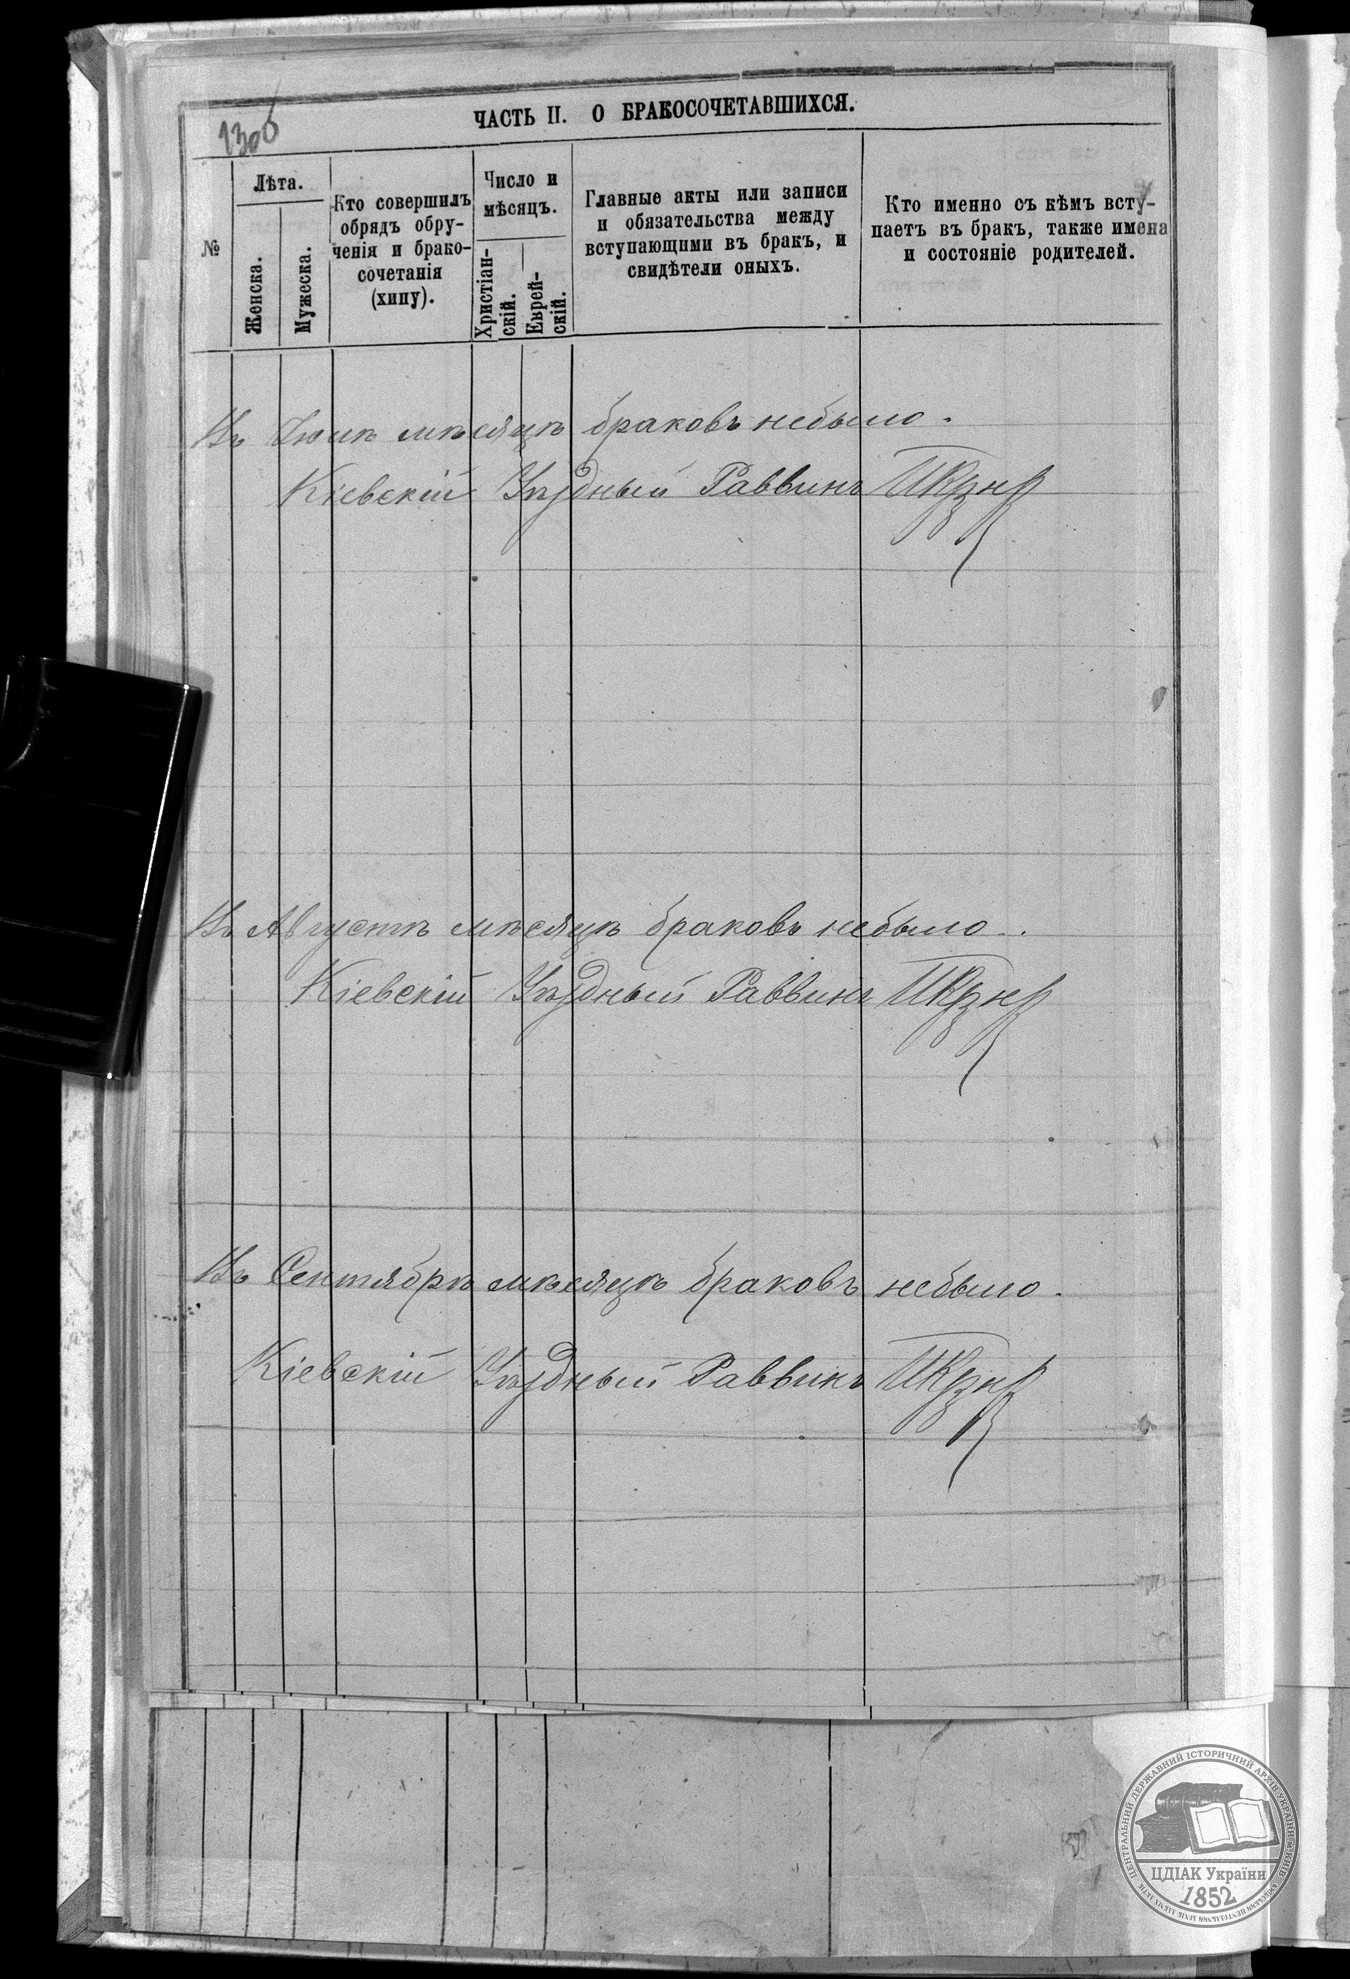 130б
ЧАСТЬ II. О БРАКОСОЧЕТАВШИХСЯ.
№
Лѣта.
Женска.
Мужеска.
Кто совершилъ
обрядъ обру-
ченія и брако-
сочетанія
(хипу).
Число и
мѣсяцъ.
Христіан-
скій.
Еврей-
скій.
Главные акты или записи
и обязательства между
вступающими въ бракъ, и
свидѣтели оныхъ.
Кто именно съ кѣмъ всту-
паетъ въ бракъ, также имена
и состояніе родителей.
Въ Іюлѣ мѣсяцѣ браковъ небыло.
Кіевскій Уѣздный Раввинъ
Въ Августѣ мѣсяцѣ браковъ небыло.
Кіевскій Уѣздный Раввинъ
Въ Сентябрѣ мѣсяцѣ браковъ небыло.
Кіевскій Уѣздный Раввинъ
ЦЕНТРАЛЬНИЙ ДЕРЖАВНИЙ ІСТОРИЧНИЙ АРХІВ УКРАЇНИ, м. КИЇВ
ЦДІАК України
1852